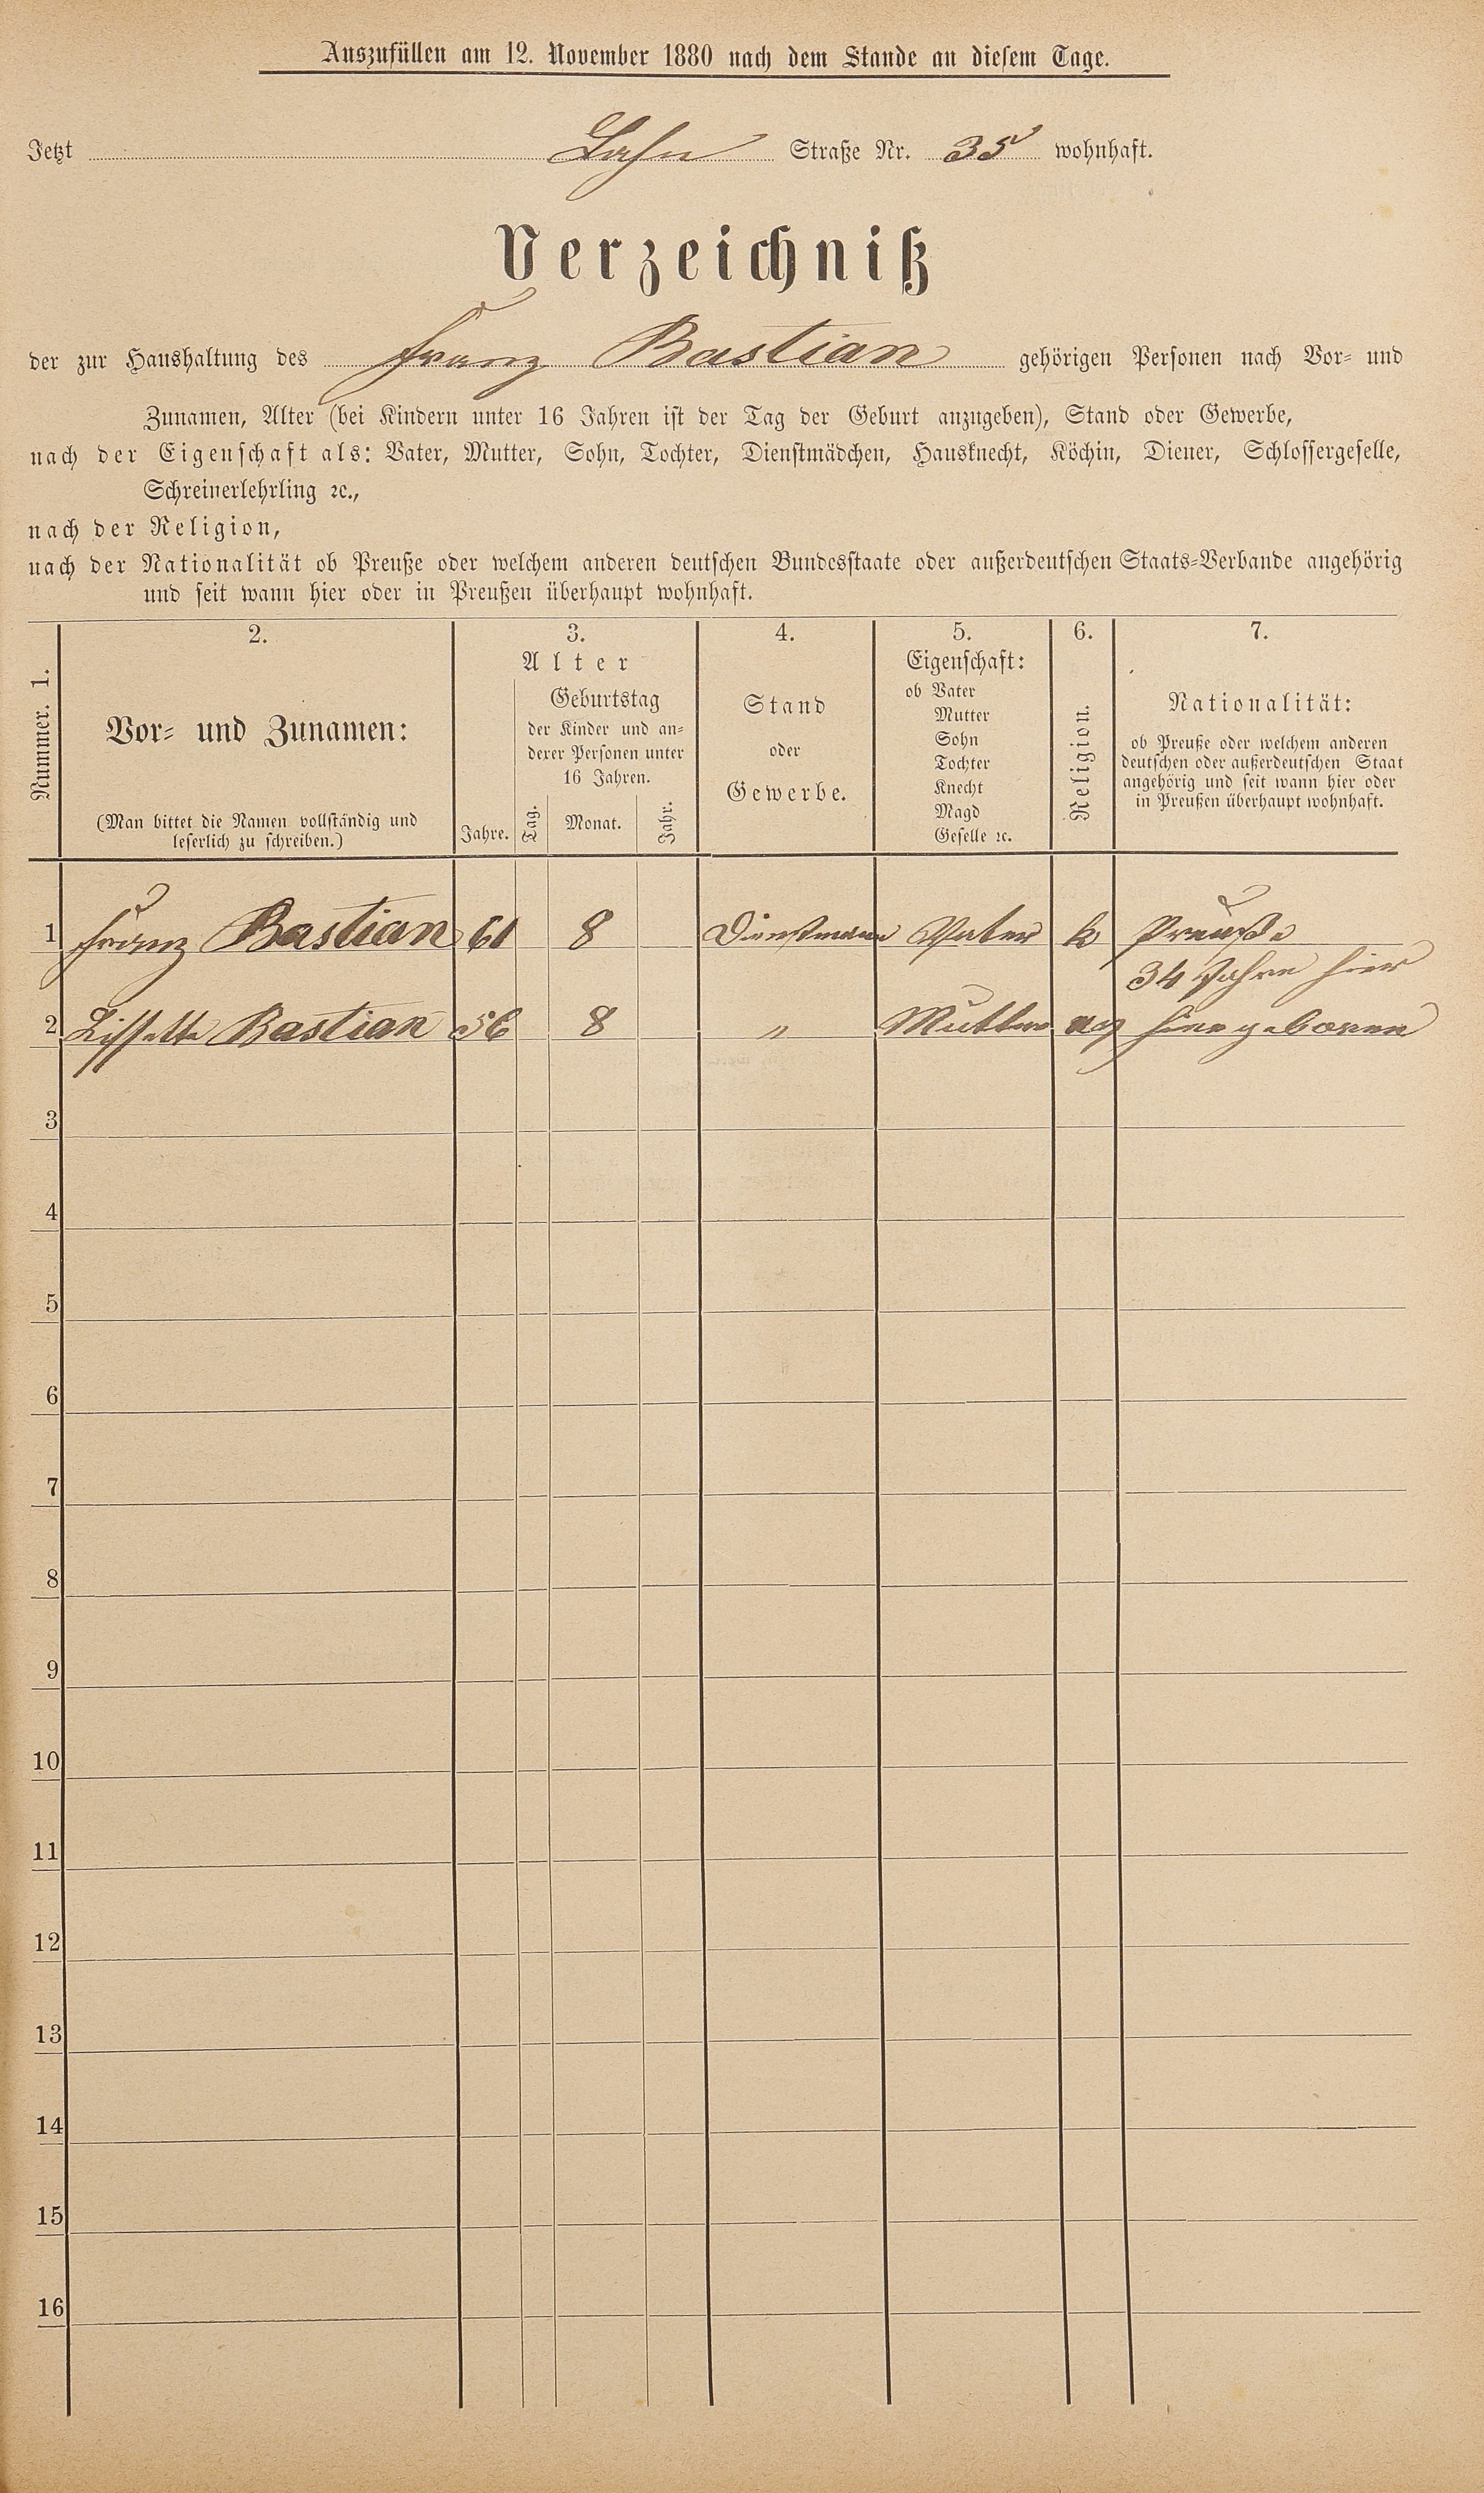 Auszufüllen am 12. November 1880 nach dem Stande an diesem Tage.
Jetzt Lahn Straße Nr. 35 wohnhaft.
Verzeichniß
der zur Haushaltung des Franz Bastian gehörigen Personen nach Vor- und
Zunamen, Alter (bei Kindern unter 16 Jahren ist der Tag der Geburt anzugeben), Stand oder Gewerbe,
nach der Eigenschaft als: Vater, Mutter, Sohn, Tochter, Dienstmädchen, Hausknecht, Köchin, Diener, Schlossergeselle,
Schreinerlehrling ꝛc.,
nach der Religion,
nach der Nationalität ob Preuße oder welchem anderen deutschen Bundesstaate oder außerdeutschen Staats-Verbande angehörig
und seit wann hier oder in Preußen überhaupt wohnhaft.
Nummer. 1.
2.
Vor- und Zunamen:
(Man bittet die Namen vollständig und
leserlich zu schreiben.)
3.
Alter
Jahre.
Geburtstag
der Kinder und an-
derer Personen unter
16 Jahren.
Tag. Monat. Jahr.
4.
Stand
oder
Gewerbe.
5.
Eigenschaft:
ob Vater
Mutter
Sohn
Tochter
Knecht
Magd
Geselle ꝛc.
6.
Religion.
7.
Nationalität:
ob Preuße oder welchem anderen
deutschen oder außerdeutschen Staat
angehörig und seit wann hier oder
in Preußen überhaupt wohnhaft.
1 Franz Bastian 61 8 Dienstmann Vater k Preuße
34 Jahre hier
2 Lissette Bastian 56 8 " Mutter eg hier geboren
3
4
5
6
7
8
9
10
11
12
13
14
15
16